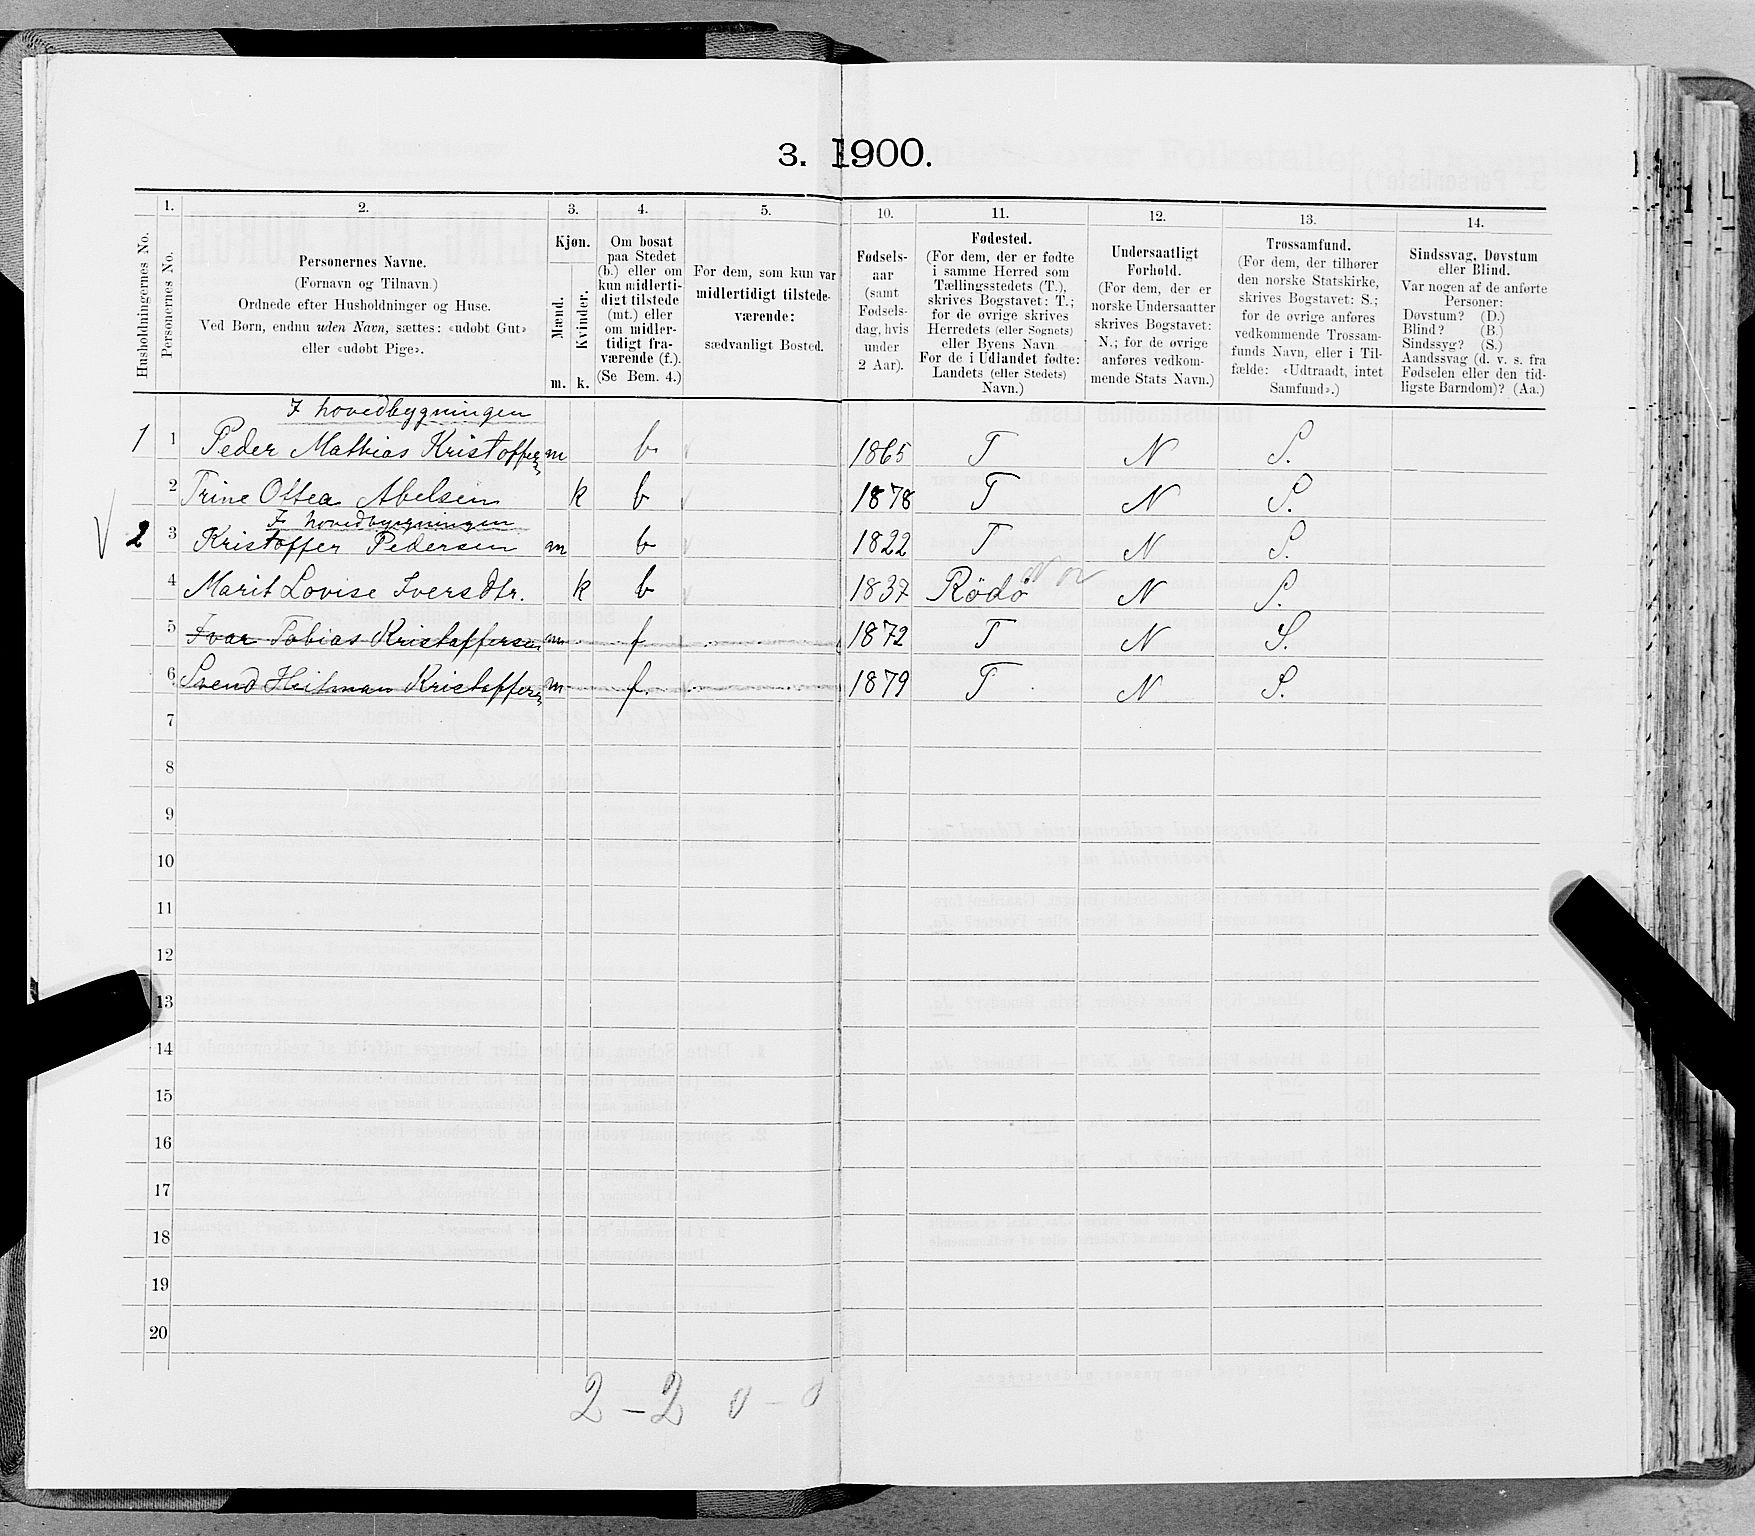 3. 1900.
1. 2. 3. 4. 5. 10. 11. 12. 13. 14.
Husholdningernes No.
Personernes No.
Personernes Navne.
(Fornavn og Tilnavn.)
Ordnede efter Husholdninger og Huse.
Ved Børn, endnu uden Navn, sættes: «udøbt Gut»
eller «udøbt Pige».
Kjøn.
Mænd.
Kvinder.
m. k.
Om bosat
paa Stedet
(b.) eller om
kun midlerti-
digt tilstede
(mt.) eller
om midler-
tidigt fra-
værende (f.).
(Se Bem. 4.)
For dem, som kun var
midlertidigt tilstede-
værende:
sædvanligt Bosted.
Fødsels-
aar
(samt
Fødsels-
dag, hvis
under
2 Aar).
Fødested.
(For dem, der er fødte
i samme Herred som
Tællingsstedets (T.),
skrives Bogstavet: T.;
for de øvrige skrives
Herredets (eller Sognets)
eller Byens Navn
For de i Udlandet fødte:
Landets (eller Stedets)
Navn.)
Undersaatligt
Forhold.
(For dem, der er
norske Undersaatter
skrives Bogstavet:
N.; for de øvrige
anføres vedkom-
mende Stats Navn.)
Trossamfund.
(For dem, der tilhører
den norske Statskirke,
skrives Bogstavet: S.;
for de øvrige anføres
vedkommende Trossam-
funds Navn, eller i Til-
fælde: «Udtraadt, intet
Samfund».)
Sindssvag, Døvstum
eller Blind.
Var nogen af de anførte
Personer:
Døvstum? (D.)
Blind? (B.)
Sindssyg? (S.)
Aandssvag (d. v. s. fra
Fødselen eller den tid-
ligste Barndom)? (Aa.)
I hovedbygningen
1 1 Peder Mathias Kristoffersen m b 1865 T N S.
2 Trine Oltea Abelsen k b 1878 T N S.
I hovedbygningen
2 3 Kristoffer Pedersen m b 1822 T N S.
4 Marit Lovise Iversdtr. k b 1837 Rödö N S.
5 Ivar Tobias Kristoffersen m f 1872 T N S.
6 Svend Heitman Kristoffersen m f. 1879 T N S.
7
8
9
10
11
12
13
14
15
16
17
18
19
20
2 - 2 0 - 0